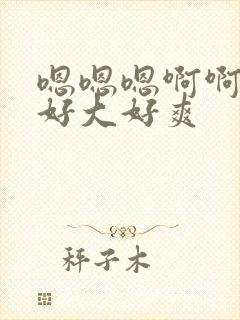 嗯嗯嗯啊啊
好大好爽
秤子木